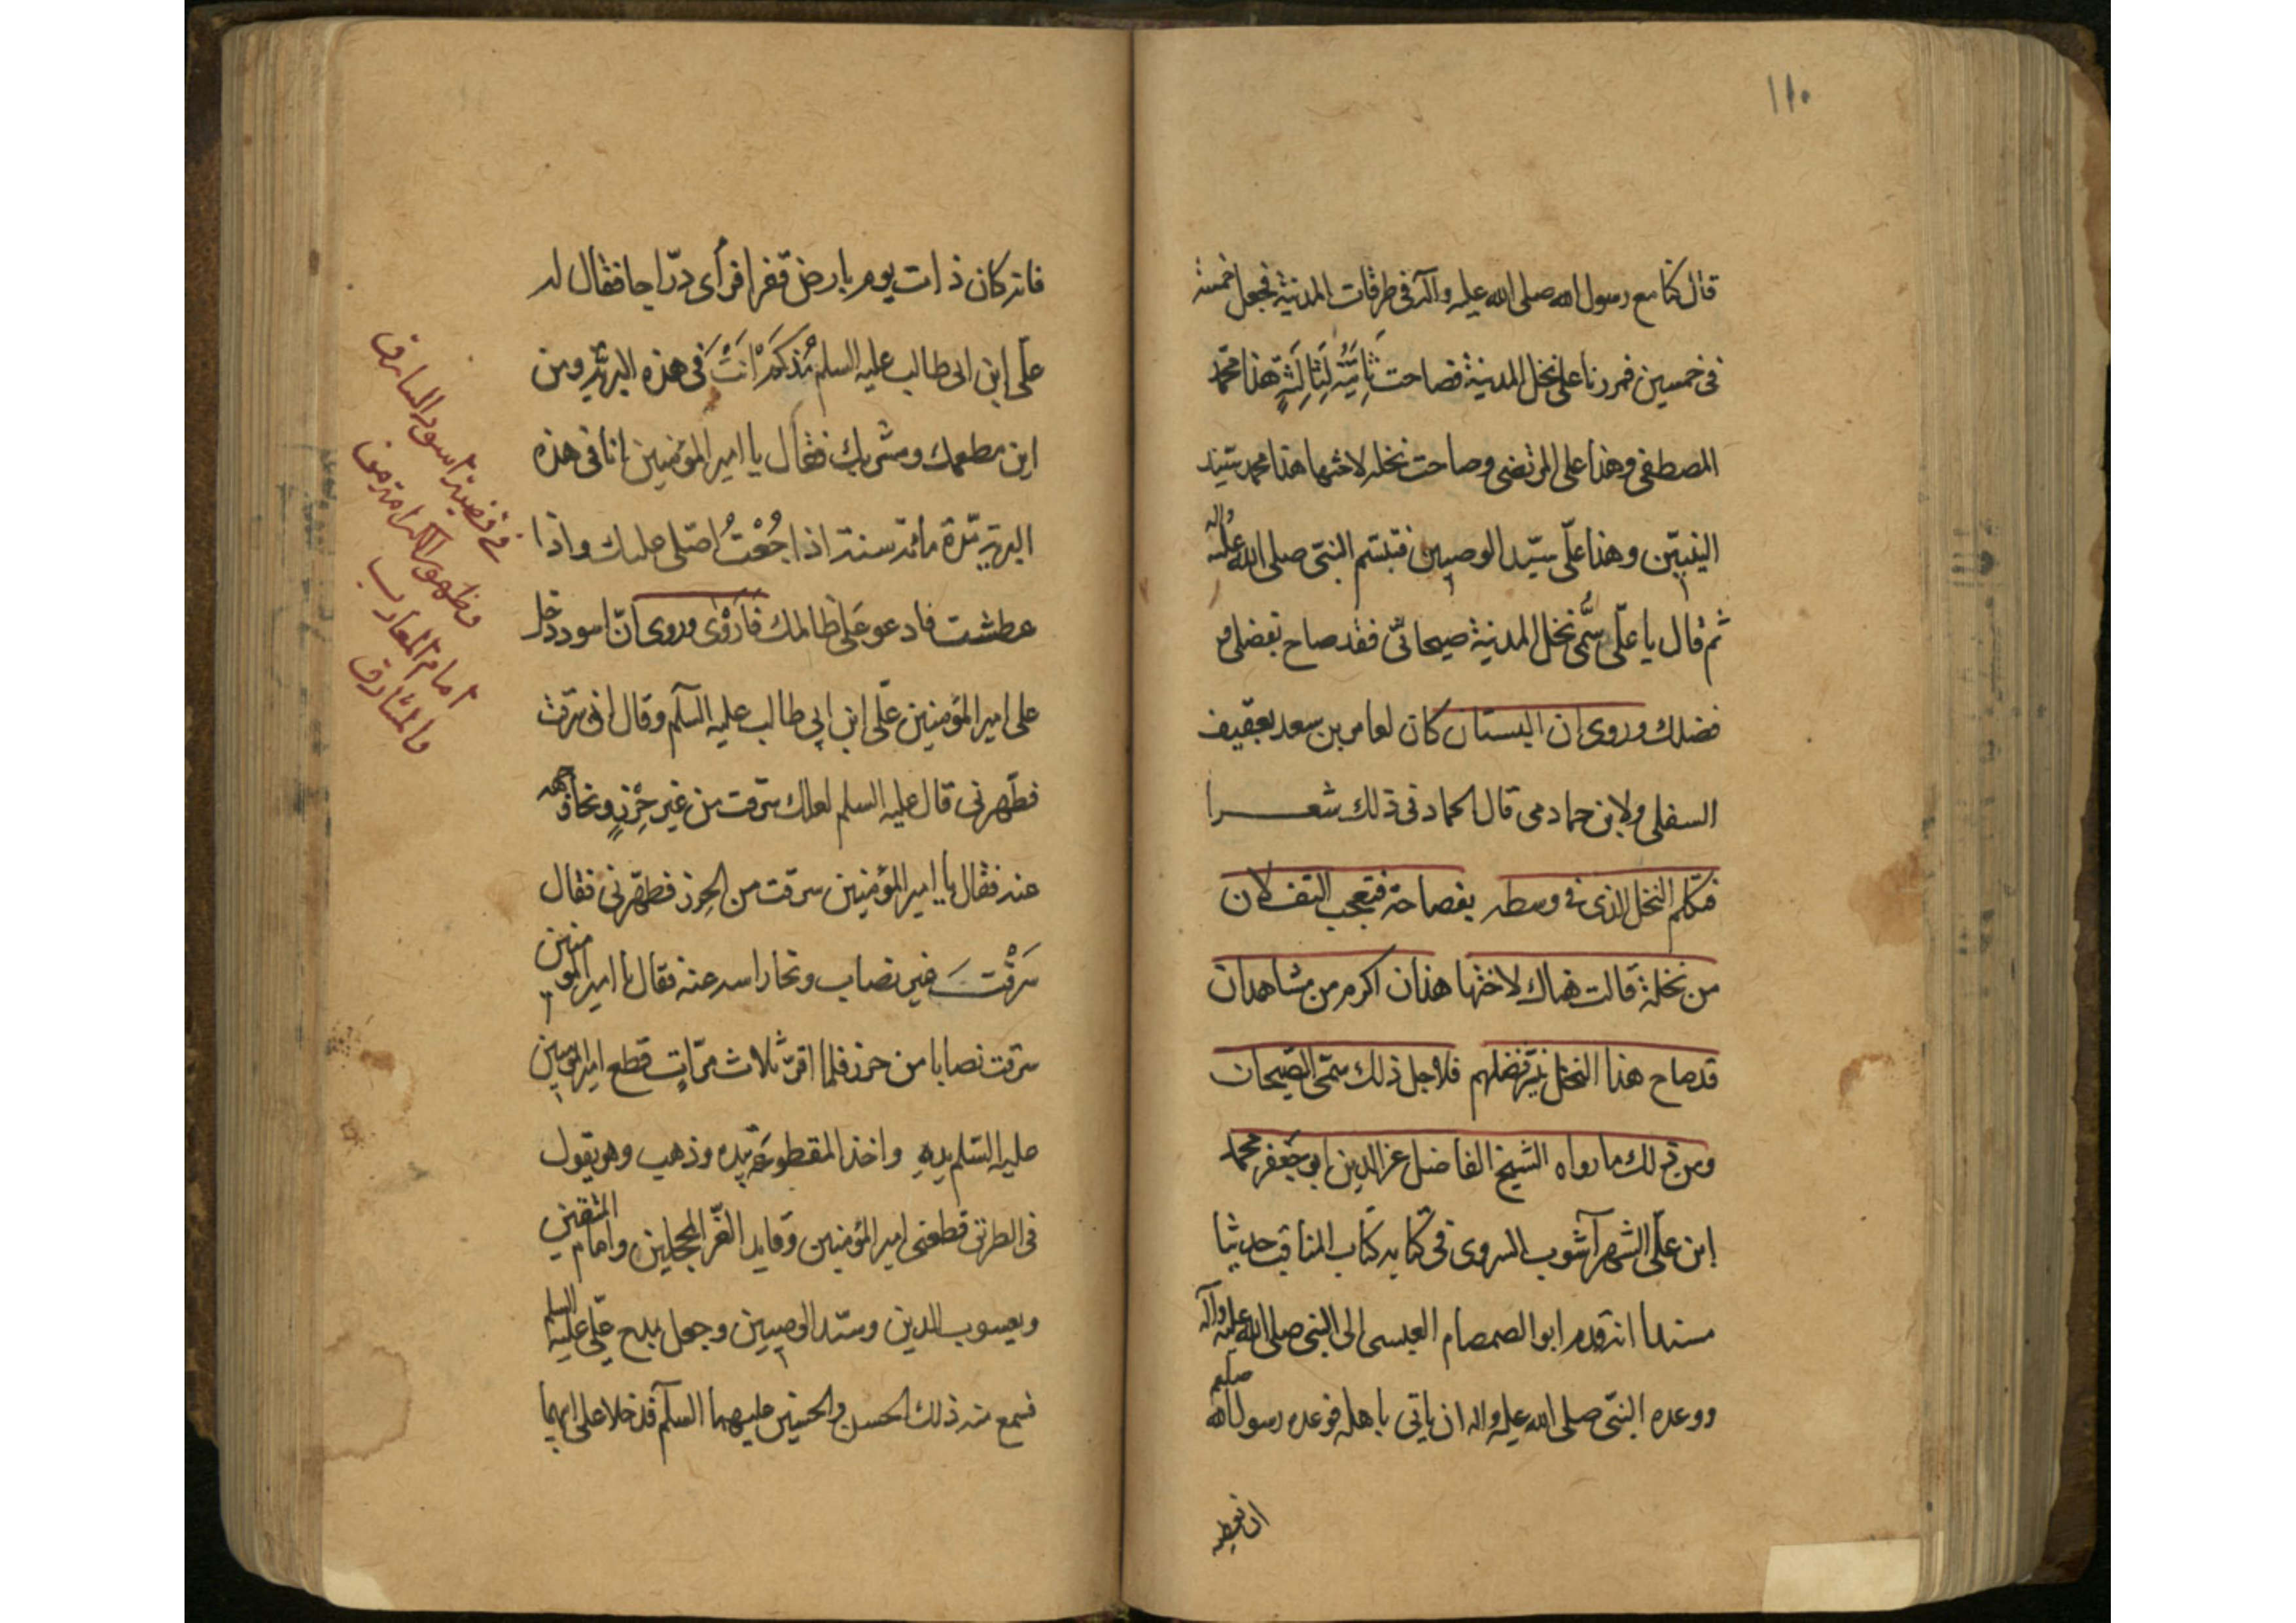 ١١٠
قال كنا مع رسول الله صلى الله عليه وآله فى طرقات المدينة فجعل خمسه
فى خمسين فمررنا على نخل المدينة فصاحت ثامِيَّة لِثالِثَةٍ هذا محمد
المصطفى وهذا على المرتضى وصاحت نخله لاختها هذا محمد سيد
النبيّين وهذا علىّ سيّد الوصيين فتبسّم النبىّ صلى الله عليه واله
ثم قال يا علّى سَمِّى نخل المدينة صيحانىّ فقد صاح بفضلى و
فضلك وروى ان البستان كان لعامر بن سعد بعقيف
السفلى ولابن حماد مى قال الحماد فى ذلك شعرا
فتكلم النخل الذى فى وسطه بفصاحة فتعجب الثقلان
من نخلة قالت هناك لاختها هذان اكرم من مشاهدان
قد صاح هذا النخل بفضلهم فلاجل ذلك سمّى الصّيحان
ومن ذلك ما رواه الشيخ الفاضل عز الدين ابو جعفر محمد
ابن علّى الشهرآشوب السروى فى كتابه كتاب المناقب حديثا
مسندا انه قدم ابو الصمصام العبسى الى النبى صلى الله عليه وآله
ووعده النبّى صلى الله عليه واله ان ياتى باهله فوعده رسول الله صلعم
ان تعطيه
فانه كان ذات يوم بارض قفر افرأى درّاجا فقال له
علّى ابن ابى طالب عليه السلم مُذكَمْ اَنْتَ فى هذه البريّة ومن
اين مطعمك ومشربك فقال يا امير المؤمنين انا فى هذه
البريّة مدّة مائة سنة اذا جُعْتُ اصلى عليك واذا
عطشت فادعو عَلى ظالمك فَاَرْوَى وروى انّ اسود دخل
على امير المؤمنين علّى ابن ابى طالب عليه السلم وقال انى سرقت
فطّهرنى قال عليه السلم لعلك سرقت من غير حِرْزٍ ونحا وجهه
عنه فقال يا امير المؤمنين سرقت من الحِرز فطهّرنى فقال
سَرَقْتَ غير نصاب ونحا راسه عنه فقال يا امير المؤمنين
سرقت نصابا من حرز فلما اقرّ ثلاث مرّاتٍ قطع امير المؤمنين
عليه السّلم يده واخذ المقطوعة بيده وذهب وهو يقول
فى الطريق قطعنى امير المؤمنين وقايد الغّر المحجلين وامام المتقين
ويعسوب الدين وسيّد الوصيين وجعل يمدح علّى عليه السلم
فسمع منه ذلك الحسن والحسين عليهما السلم فدخلا على ابيهما
فى قضية اسود السارق
وظهور الكرامة من
امام المغارب
والمشارق